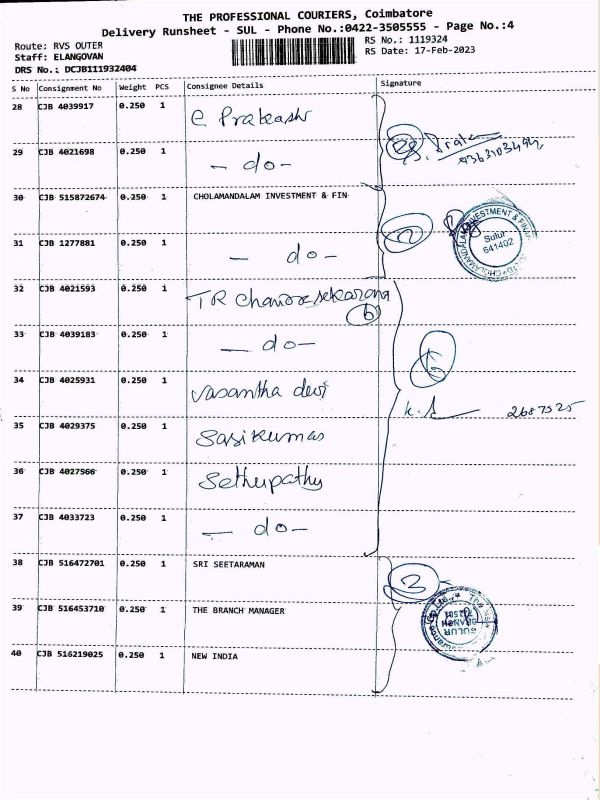 THE PROFESSIONAL COURIERS, Coimbatore
Delivery Runsheet - SUL - Phone No.:0422-3505555 - Page No.:4
Route: RVS OUTER
Staff: ELANGOVAN
DRS No.: DCJB111932404
RS No.: 1119324
RS Date: 17-Feb-2023
S No Consignment No Weight PCS Consignee Details Signature
28 CJB 4039917 0.250 1 C Prakash
29 CJB 4021698 0.250 1 - do -
30 CJB 515872674 0.250 1 CHOLAMANDALAM INVESTMENT & FIN
31 CJB 1277881 0.250 1 - do -
Sulur
641402
32 CJB 4021593 0.250 1 TR Chandrasekarana
6
33 CJB 4039183 0.250 1 - do -
6
34 CJB 4025931 0.250 1 Vasantha devi
2687525
35 CJB 4029375 0.250 1 Sasikumar
36 CJB 4027566 0.250 1 Sethupathy
37 CJB 4033723 0.250 1 - do -
38 CJB 516472701 0.250 1 SRI SEETARAMAN
3
39 CJB 516453710 0.250 1 THE BRANCH MANAGER
SULUR
BRANCH
40 CJB 516219025 0.250 1 NEW INDIA